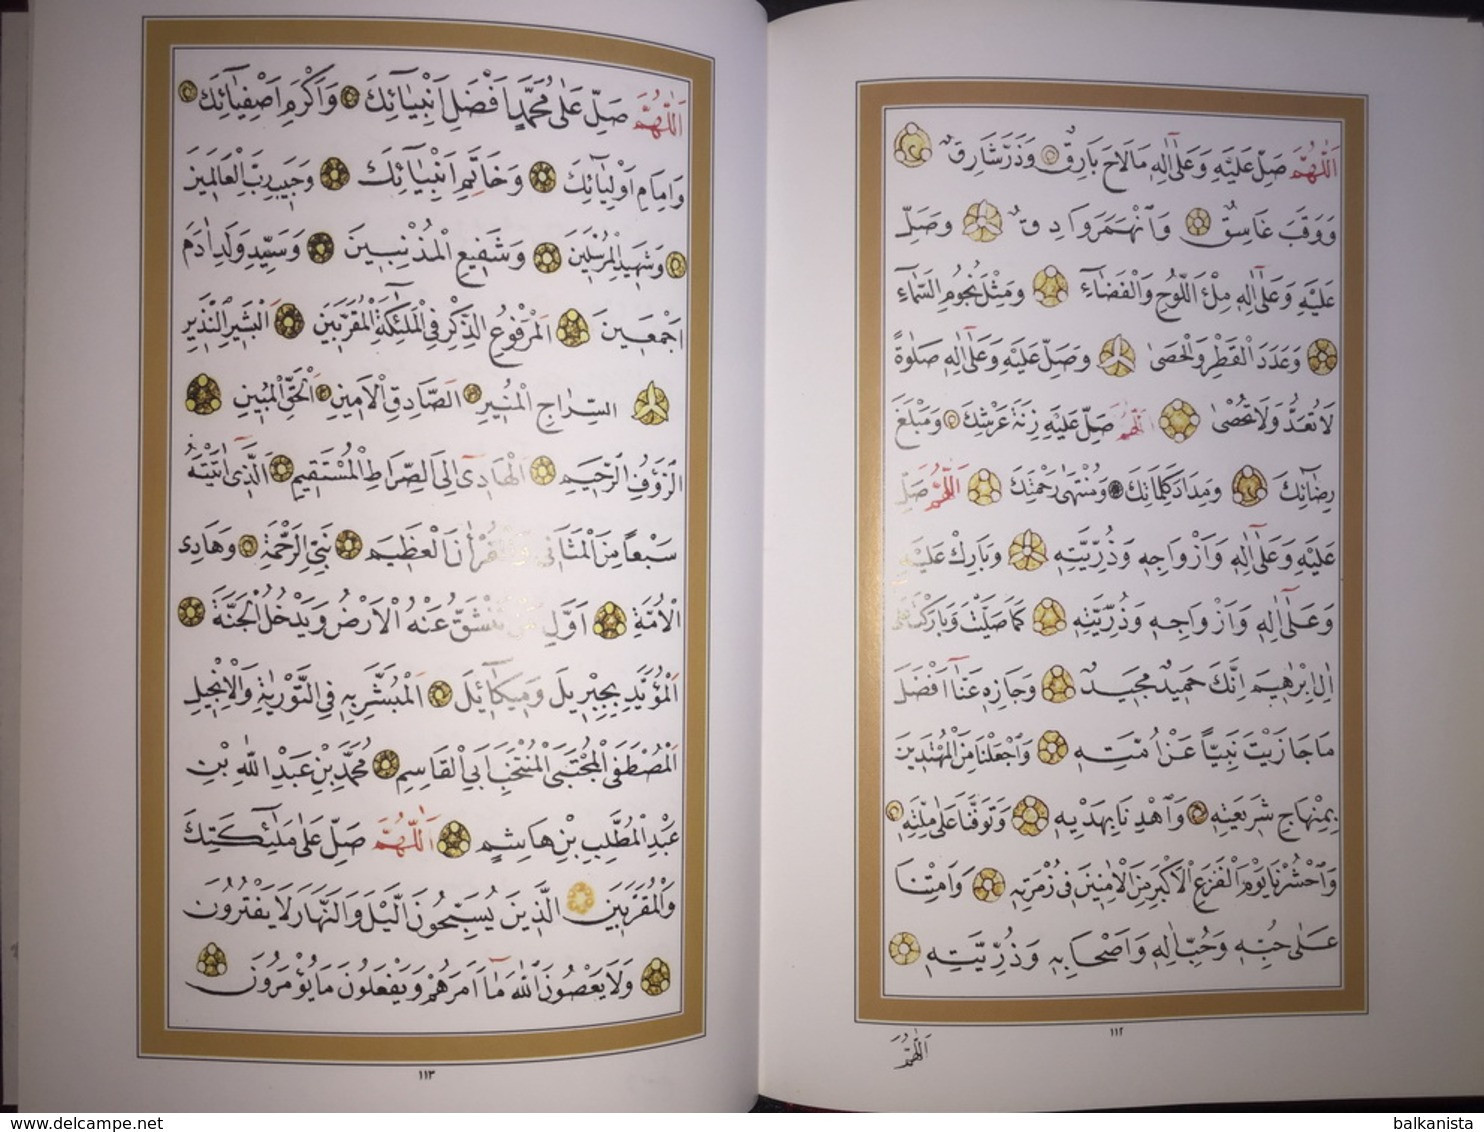 اَللّٰهُمَّ صَلِّ عَلَيْهِ وَعَلٰٓى اٰلِهِ مَا لَاحَ بَارِقٌ وَذَرَّ شَارِقٌ
وَوَقَبَ غَاسِقٌ وَانْهَمَرَ وَادِقٌ وَصَلِّ
عَلَيْهِ وَعَلٰٓى اٰلِهِ مِلْءَ اللَّوْحِ وَالْفَضَاءِ وَمِثْلَ نُجُومِ السَّمَاءِ
وَعَدَدَ الْقَطْرِ وَالْحَصٰى وَصَلِّ عَلَيْهِ وَعَلٰٓى اٰلِهِ صَلٰوةً
لَا تُعَدُّ وَلَا تُحْصٰى اَللّٰهُمَّ صَلِّ عَلَيْهِ زِنَةَ عَرْشِكَ وَمَبْلَغَ
رِضَائِكَ وَمِدَادَ كَلِمَاتِكَ وَمُنْتَهٰى رَحْمَتِكَ اَللّٰهُمَّ صَلِّ
عَلَيْهِ وَعَلٰٓى اٰلِهِ وَاَزْوَاجِهِ وَذُرِّيَّتِهِ وَبَارِكْ عَلَيْهِ
وَعَلٰٓى اٰلِهِ وَاَزْوَاجِهِ وَذُرِّيَّتِهِ كَمَا صَلَّيْتَ وَبَارَكْتَ عَلٰى
اٰلِ اِبْرٰهِيمَ اِنَّكَ حَمِيدٌ مَجِيدٌ وَجَازِهِ عَنَّٓا اَفْضَلَ
مَا جَازَيْتَ نَبِيًّا عَنْ اُمَّتِهِ وَاجْعَلْنَا مِنَ الْمُهْتَدِينَ
بِمِنْهَاجِ شَرِيعَتِهِ وَاهْدِنَا بِهَدْيِهِ وَتَوَفَّنَا عَلٰى مِلَّتِهِ
وَاحْشُرْنَا يَوْمَ الْفَزَعِ الْاَكْبَرِ مِنَ الْاٰمِنِينَ فِى زُمْرَتِهِ وَاَمِتْنَا
عَلٰى حُبِّهِ وَحُبِّ اٰلِهِ وَاَصْحَابِهِ وَذُرِّيَّتِهِ
١١٢
اَللّٰهُمَّ
اَللّٰهُمَّ صَلِّ عَلٰى مُحَمَّدٍ اَفْضَلِ اَنْبِيَٓائِكَ وَاَكْرَمِ اَصْفِيَٓائِكَ
وَاِمَامِ اَوْلِيَٓائِكَ وَخَاتَمِ اَنْبِيَٓائِكَ وَحَبِيبِ رَبِّ الْعَالَمِينَ
وَشَهِيدِ الْمُرْسَلِينَ وَشَفِيعِ الْمُذْنِبِينَ وَسَيِّدِ وَلَدِ اٰدَمَ
اَجْمَعِينَ اَلْمَرْفُوعِ الذِّكْرِ فِى الْمَلٰٓئِكَةِ الْمُقَرَّبِينَ اَلْبَشِيرِ النَّذِيرِ
السِّرَاجِ الْمُنِيرِ اَلصَّادِقِ الْاَمِينِ اَلْحَقِّ الْمُبِينِ
اَلرَّؤُفِ الرَّحِيمِ اَلْهَادِى اِلَى الصِّرَاطِ الْمُسْتَقِيمِ اَلَّذِى اٰتَيْتَهُ
سَبْعًا مِنَ الْمَثَانِى وَالْقُرْاٰنَ الْعَظِيمَ نَبِىِّ الرَّحْمَةِ وَهَادِى
الْاُمَّةِ اَوَّلِ مَنْ تَنْشَقُّ عَنْهُ الْاَرْضُ وَيَدْخُلُ الْجَنَّةَ
اَلْمُؤَيَّدِ بِجِبْرِيلَ وَمِيكَآئِيلَ اَلْمُبَشَّرِ بِهِ فِى التَّوْرٰيةِ وَالْاِنْجِيلِ
اَلْمُصْطَفَى الْمُجْتَبَى الْمُنْتَخَبِ اَبِى الْقَاسِمِ مُحَمَّدِ بْنِ عَبْدِ اللّٰهِ بْنِ
عَبْدِ الْمُطَّلِبِ بْنِ هَاشِمٍ اَللّٰهُمَّ صَلِّ عَلٰى مَلٰٓئِكَتِكَ
وَالْمُقَرَّبِينَ الَّذِينَ يُسَبِّحُونَ الَّيْلَ وَالنَّهَارَ لَا يَفْتُرُونَ
وَلَا يَعْصُونَ اللّٰهَ مَٓا اَمَرَهُمْ وَيَفْعَلُونَ مَا يُؤْمَرُونَ
١١٣
www.delcampe.net
balkanista